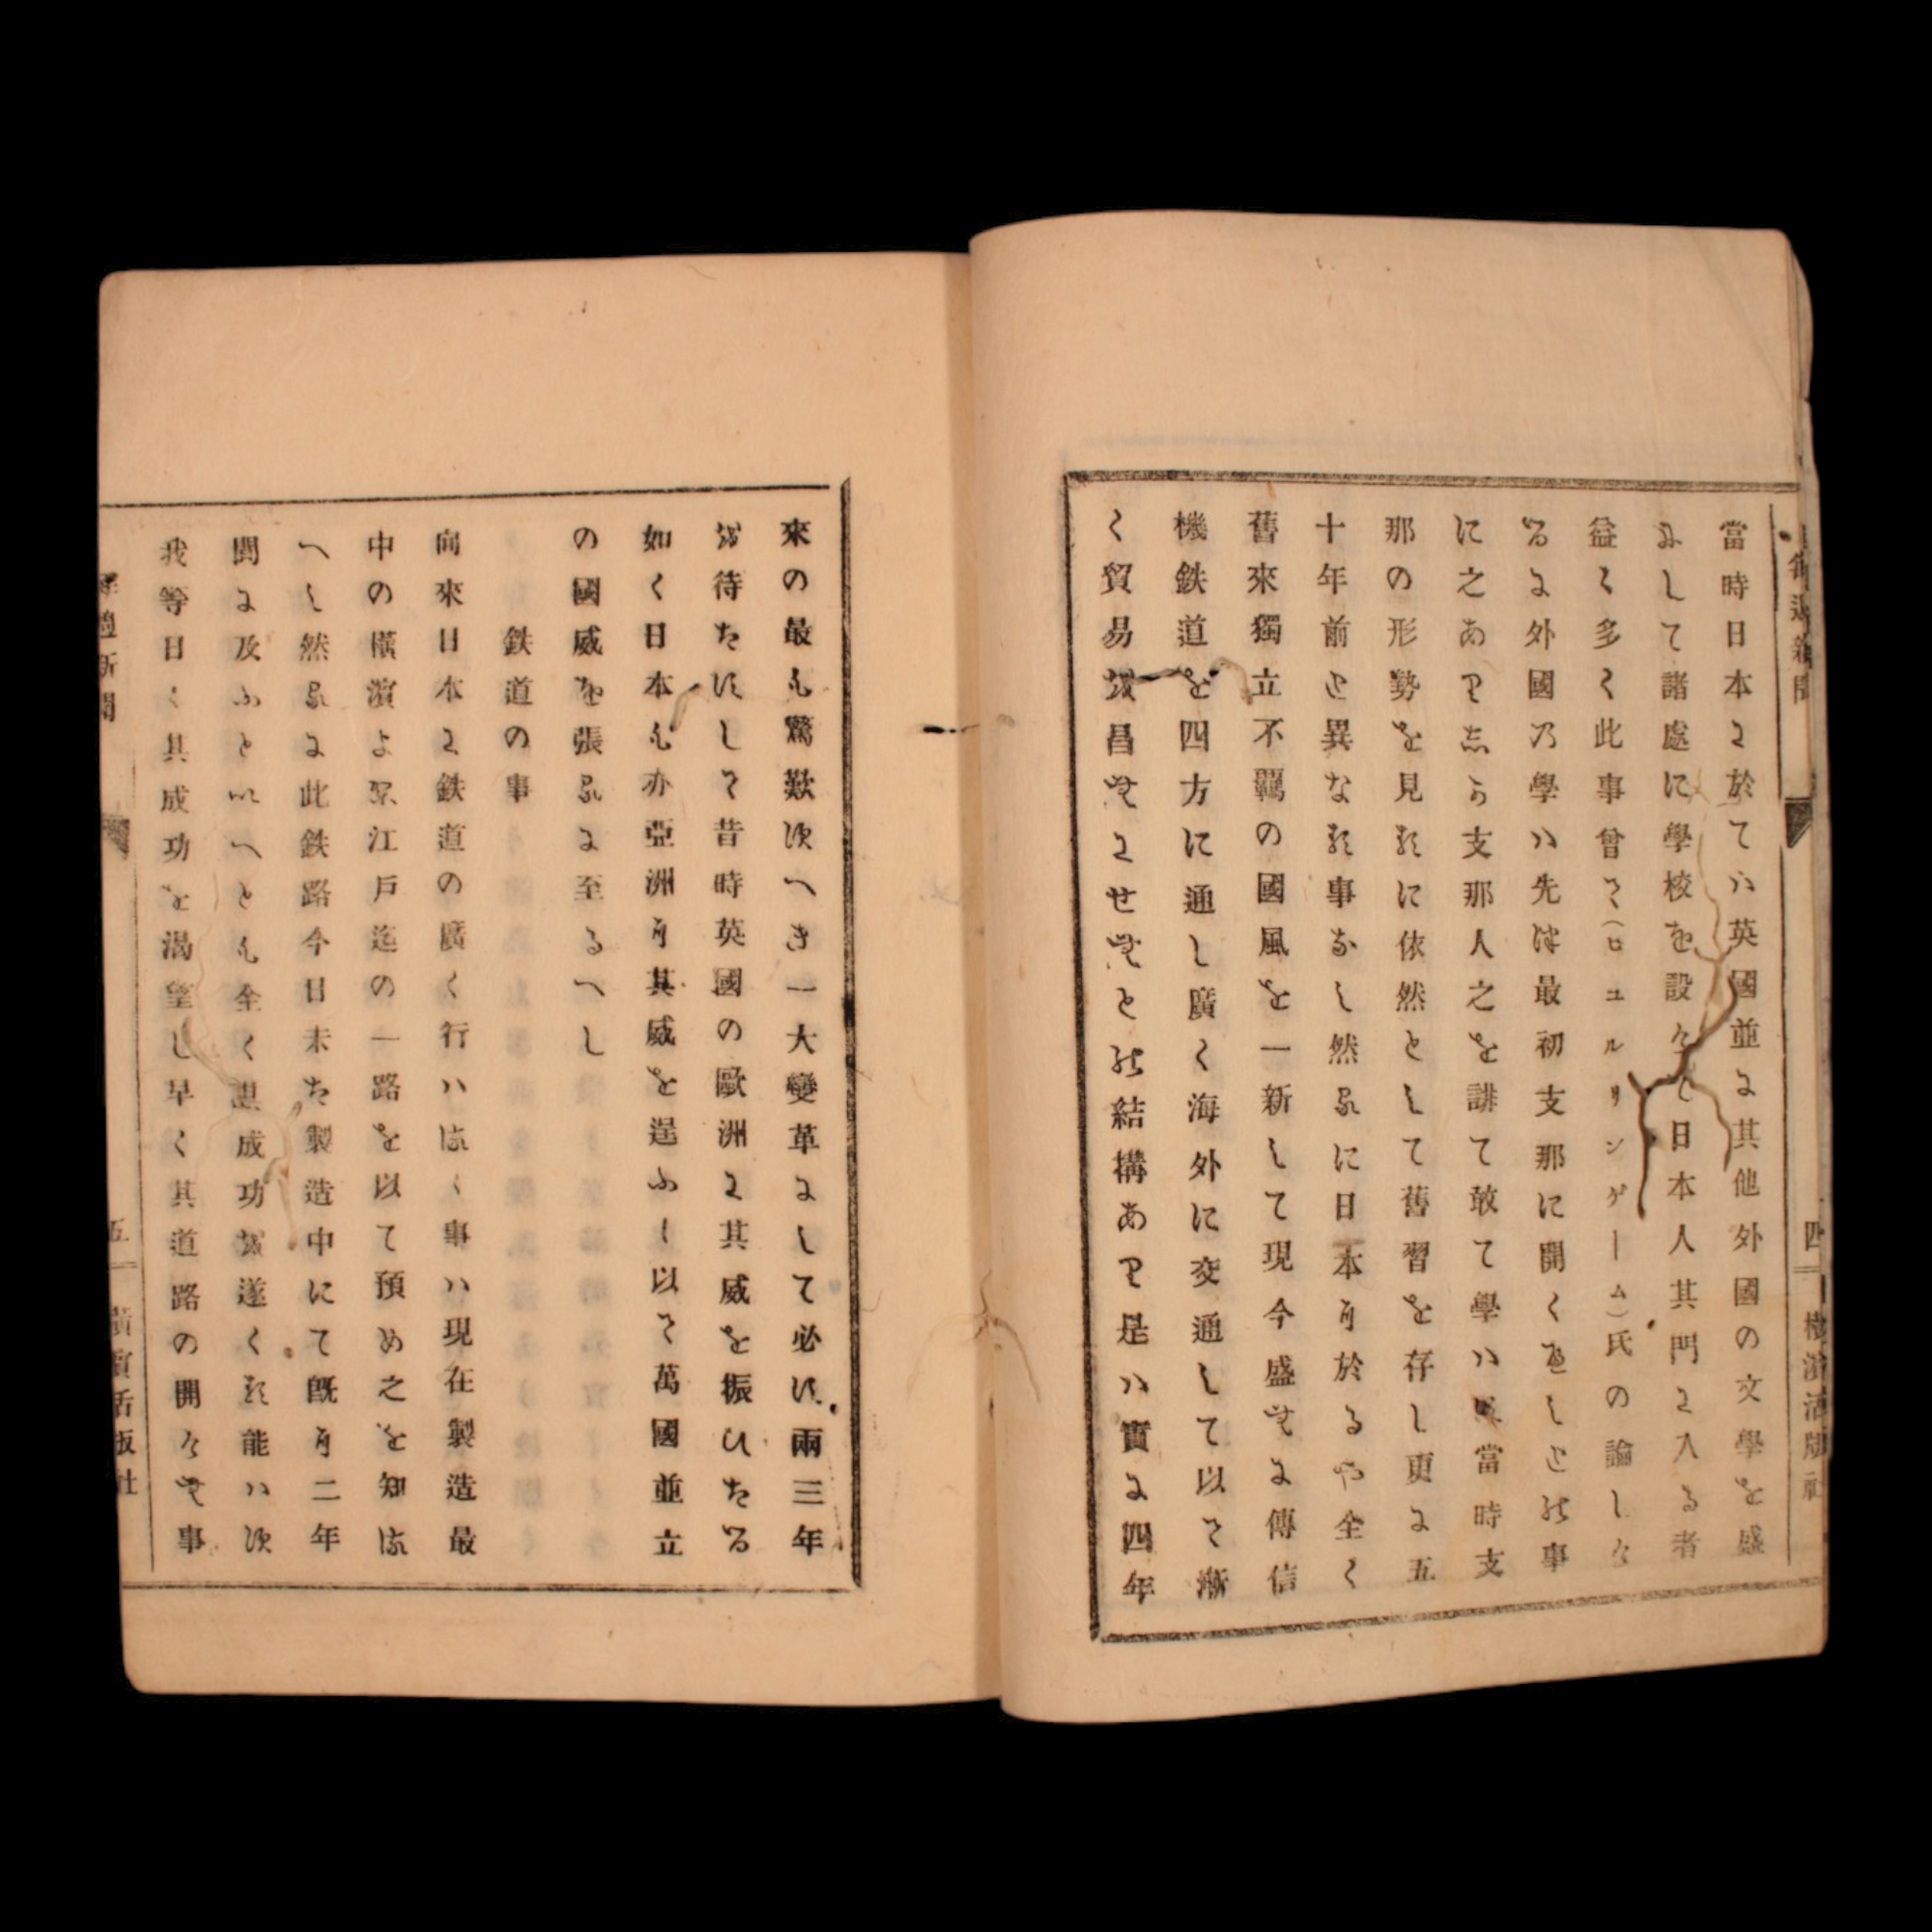 毎週新聞 四 横濱活版社
當時日本に於てハ英國並に其他外國の文學を盛
にして諸處に學校を設けて日本人其門に入る者
益々多く此事曾て(ヒユルリンゲーム)氏の論しけ
るに外國乃學ハ先つ最初支那に開くへしとの事
に之あり志か支那人之を誹て敢て學ハす當時支
那の形勢を見るに依然として舊習を存し更に五
十年前と異なる事なし然るに日本に於るや全く
舊來獨立不羈の國風を一新して現今盛んに傳信
機鉄道を四方に通し廣く海外に交通して以て漸
く貿易を昌んにせんとの結構あり是ハ實に四年
來の最も驚歎すへき一大變革にして必す兩三年
を待たすして昔時英國の歐洲に其威を振ひたる
如く日本も亦亞洲に其威を逞ふし以て萬國並立
の國威を張るに至るへし
鉄道の事
向來日本に鉄道の廣く行ハるゝ事ハ現在製造最
中の橫濱より江戸迄の一路を以て預め之を知る
へし然るに此鉄路今日未た製造中にて既に二年
間に及ふといへとも全く其成功を遂くる能ハす
我等日く其成功を渇望し早く其道路の開けん事
毎週新聞 五 横濱活版社